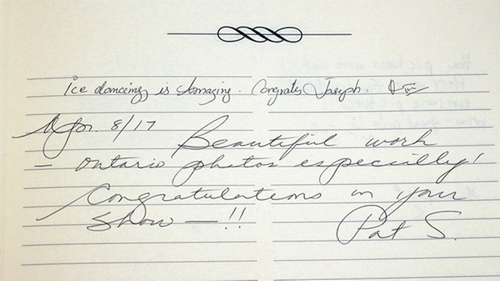 ice dancing is Amazing. Congrates Joseph.
Apr. 8/17
Beautiful work
– Ontario photos especially!
Congratulations on your
show —!!
Pat S.